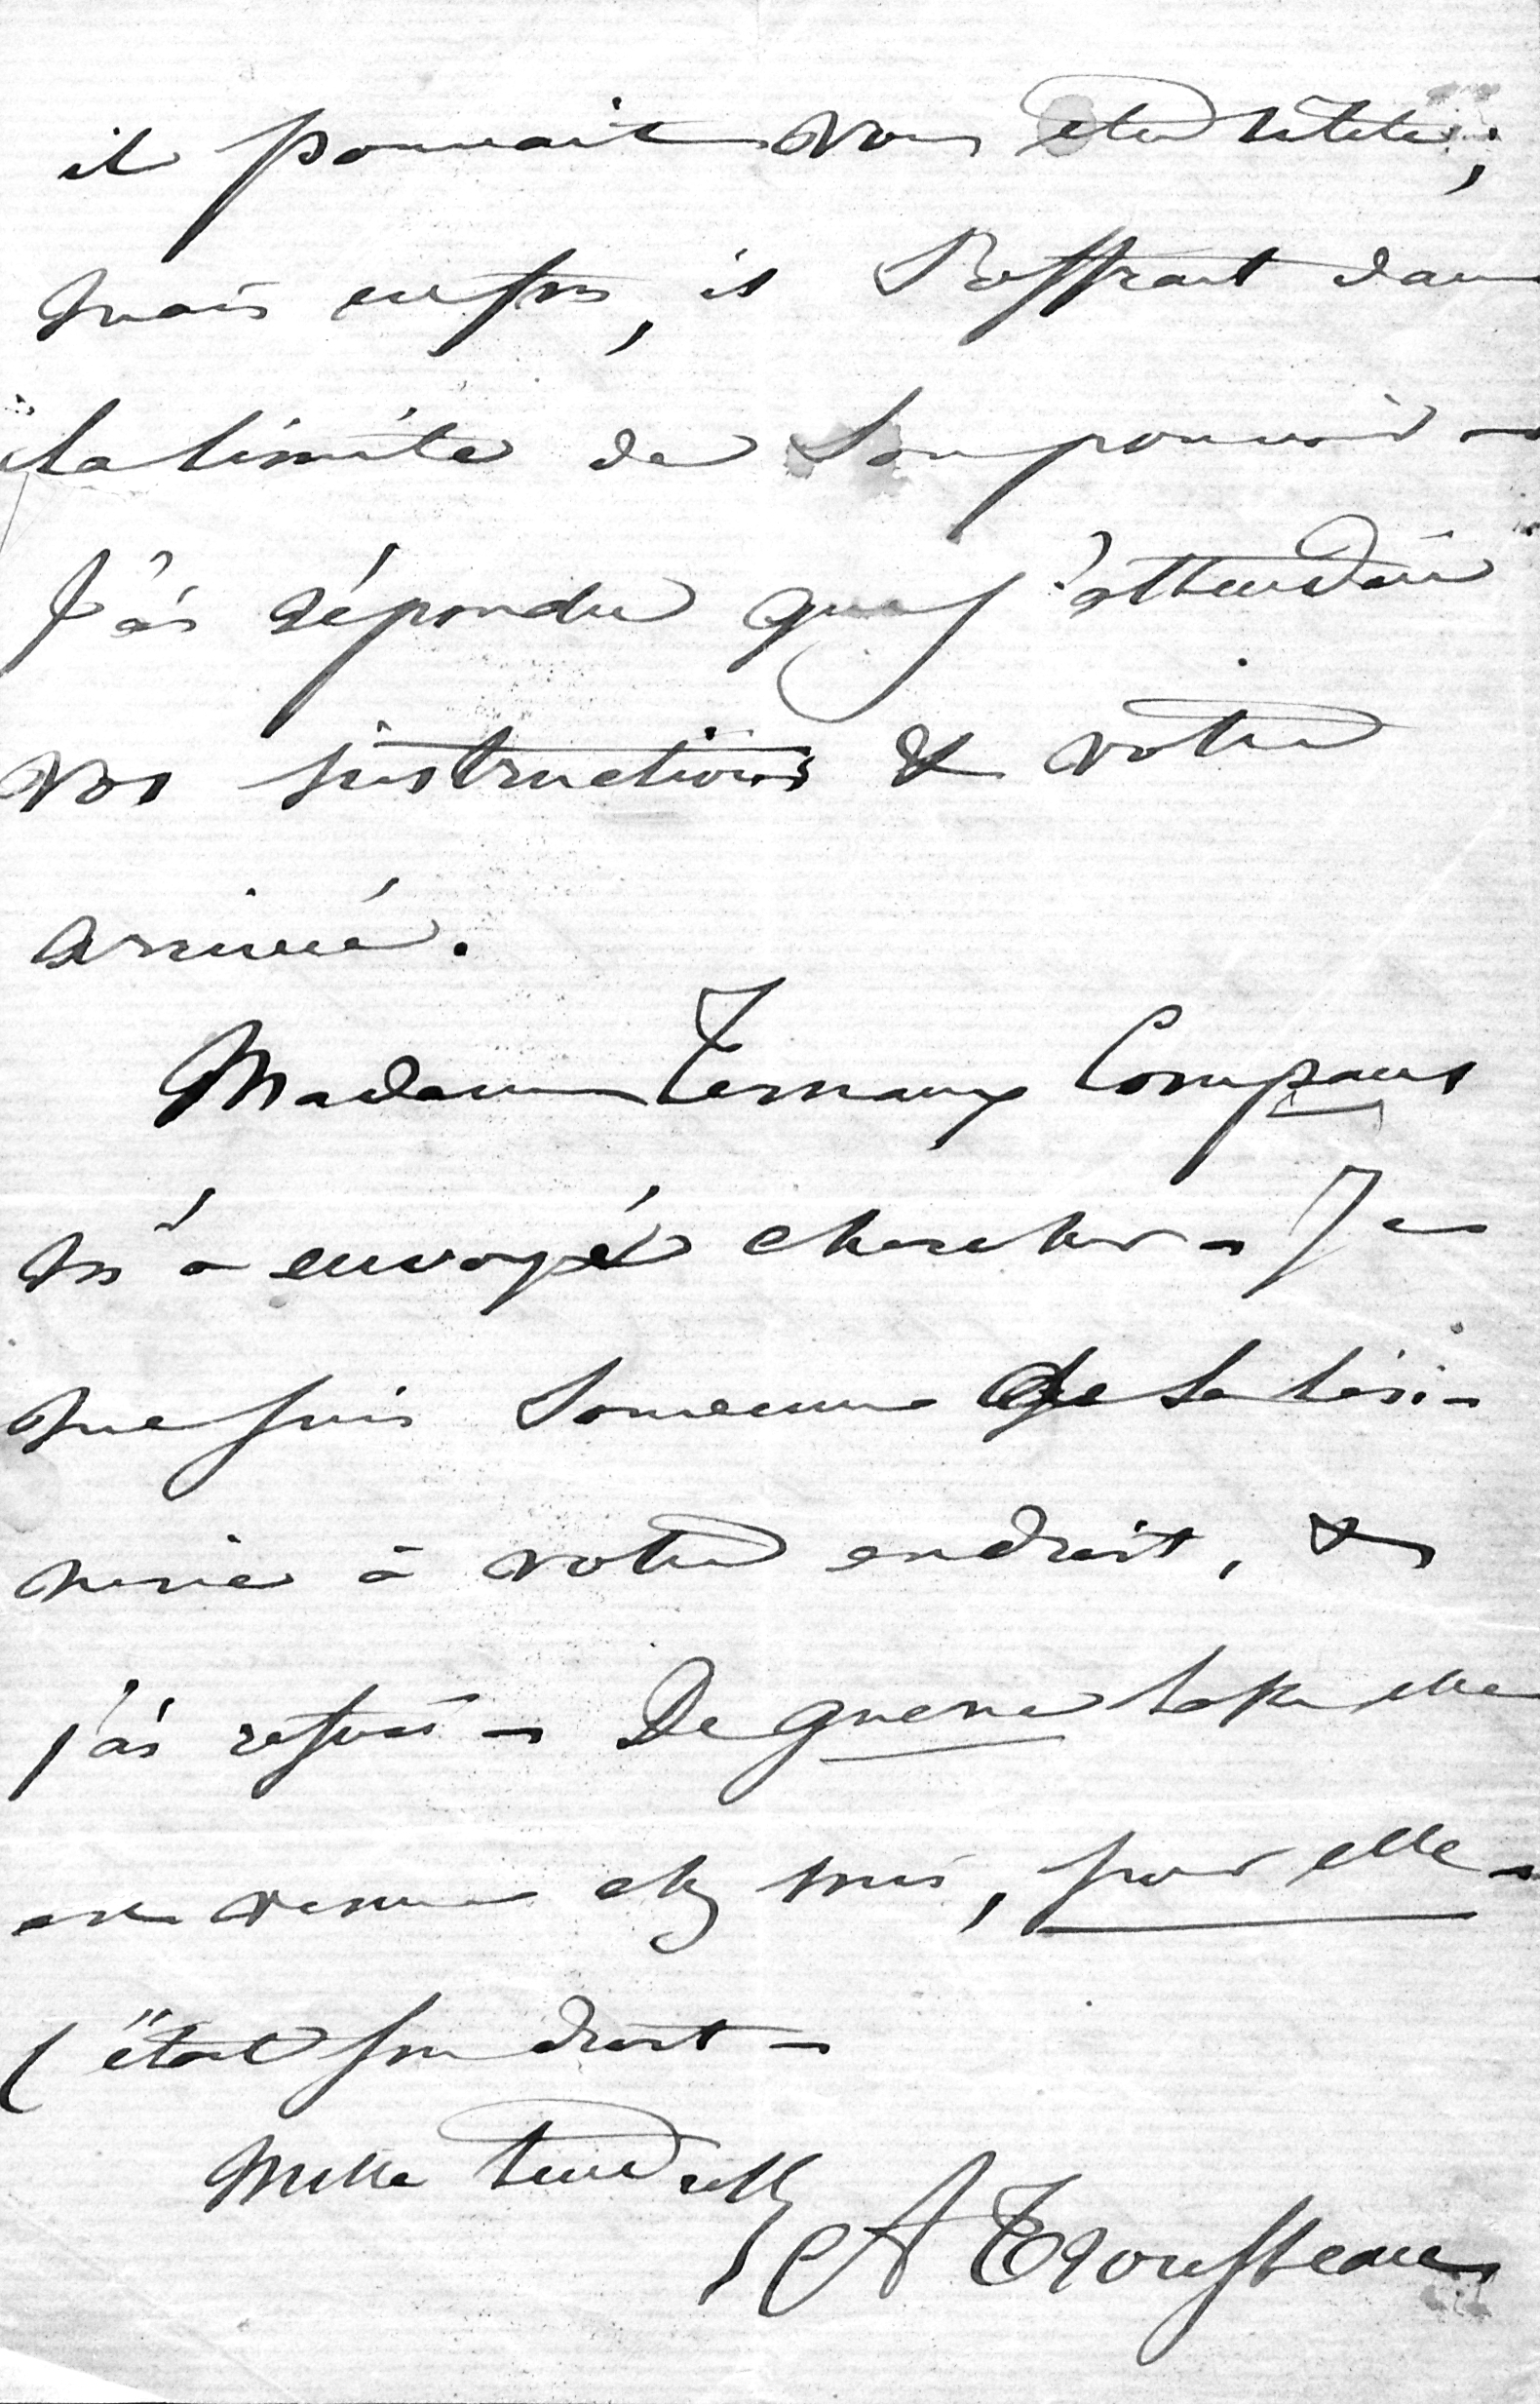 il pouvait vous être utile;
mais enfin, il s'offrait dans
la limite de son pouvoir —
J'ai répondu que j'attendais
vos instructions & votre
arrivée.
Madame Ternaux Compans
m'a envoyé chercher — Je
me suis souvenu de sa lési-
nerie à votre endroit, &
j'ai refusé — De guerre lasse elle
est venue chez moi, pour elle —
C'était son droit —
Mille tendresses
A Trousseau